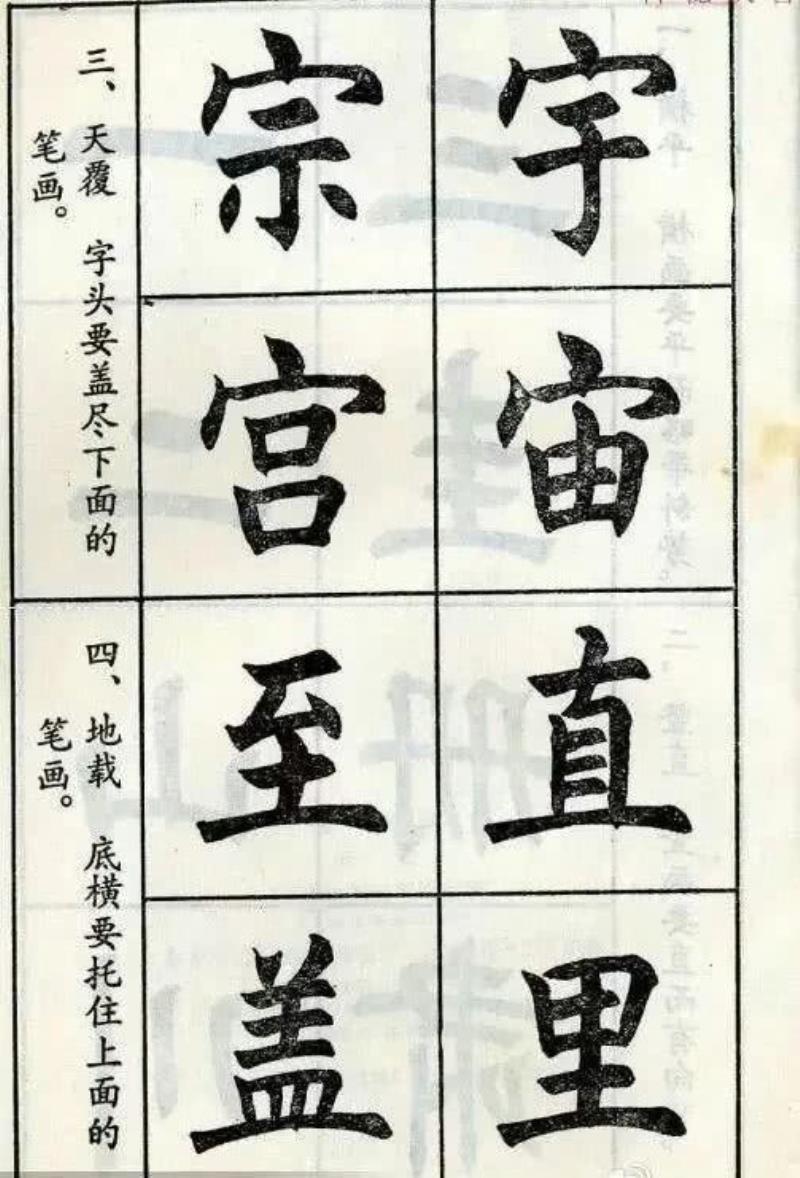 宇宙
宗宫
三、天覆 字头要盖尽下面的
笔画。
直里
至盖
四、地载 底横要托住上面的
笔画。